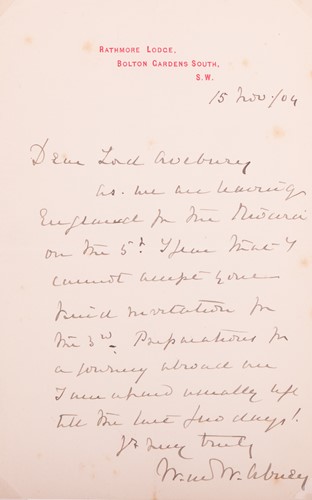 RATHMORE LODGE,
BOLTON GARDENS SOUTH,
S.W.
15 Nov./04
Dear Lord Avebury
as we are leaving
England for the Riviera
on the 5th. I fear that I
cannot accept your
kind invitation for
the 3rd. Preparations for
a journey abroad are
I am afraid usually left
till the last few days!
Yrs very truly
W. de W. Abney